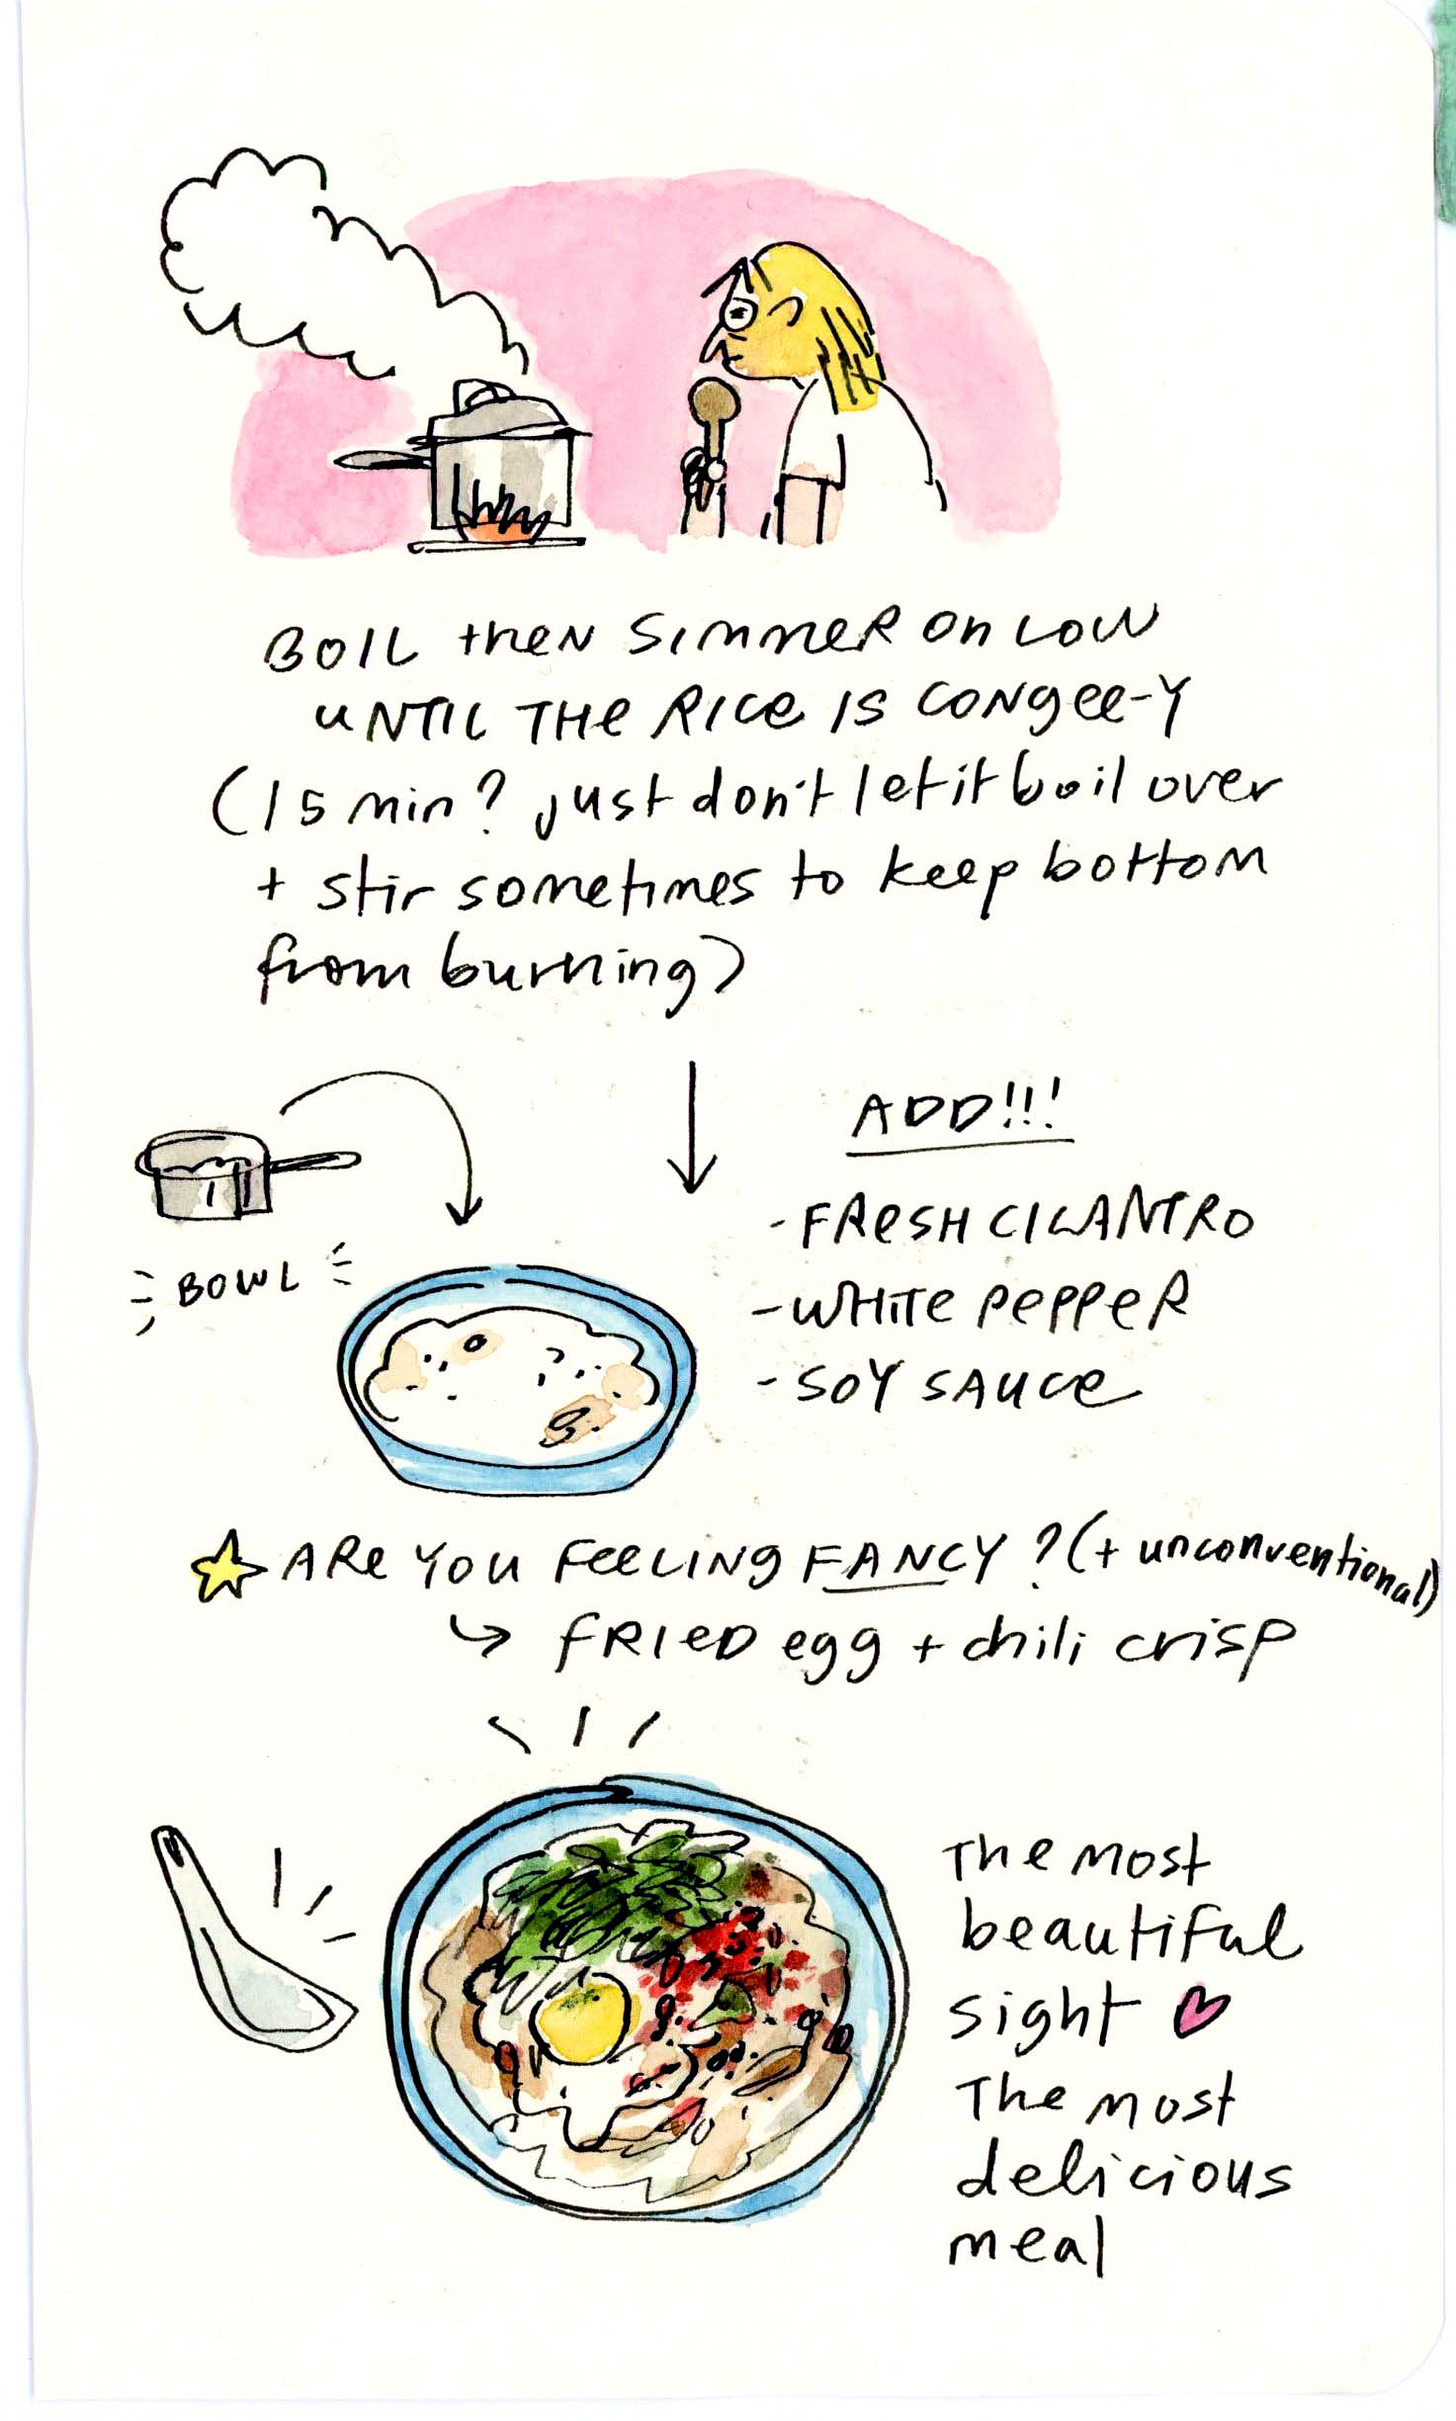 BOIL then SIMMER ON LOW
UNTIL THE RICE IS CONGEE-Y
(15 min? just don't let it boil over
+ stir sometimes to keep bottom
from burning)
ADD!!!
BOWL
- FRESH CILANTRO
- WHITE PEPPER
- SOY SAUCE
ARE YOU FEELING FANCY? (+ unconventional)
↳ FRIED egg + chili crisp
The most
beautiful
sight ♥
The most
delicious
meal